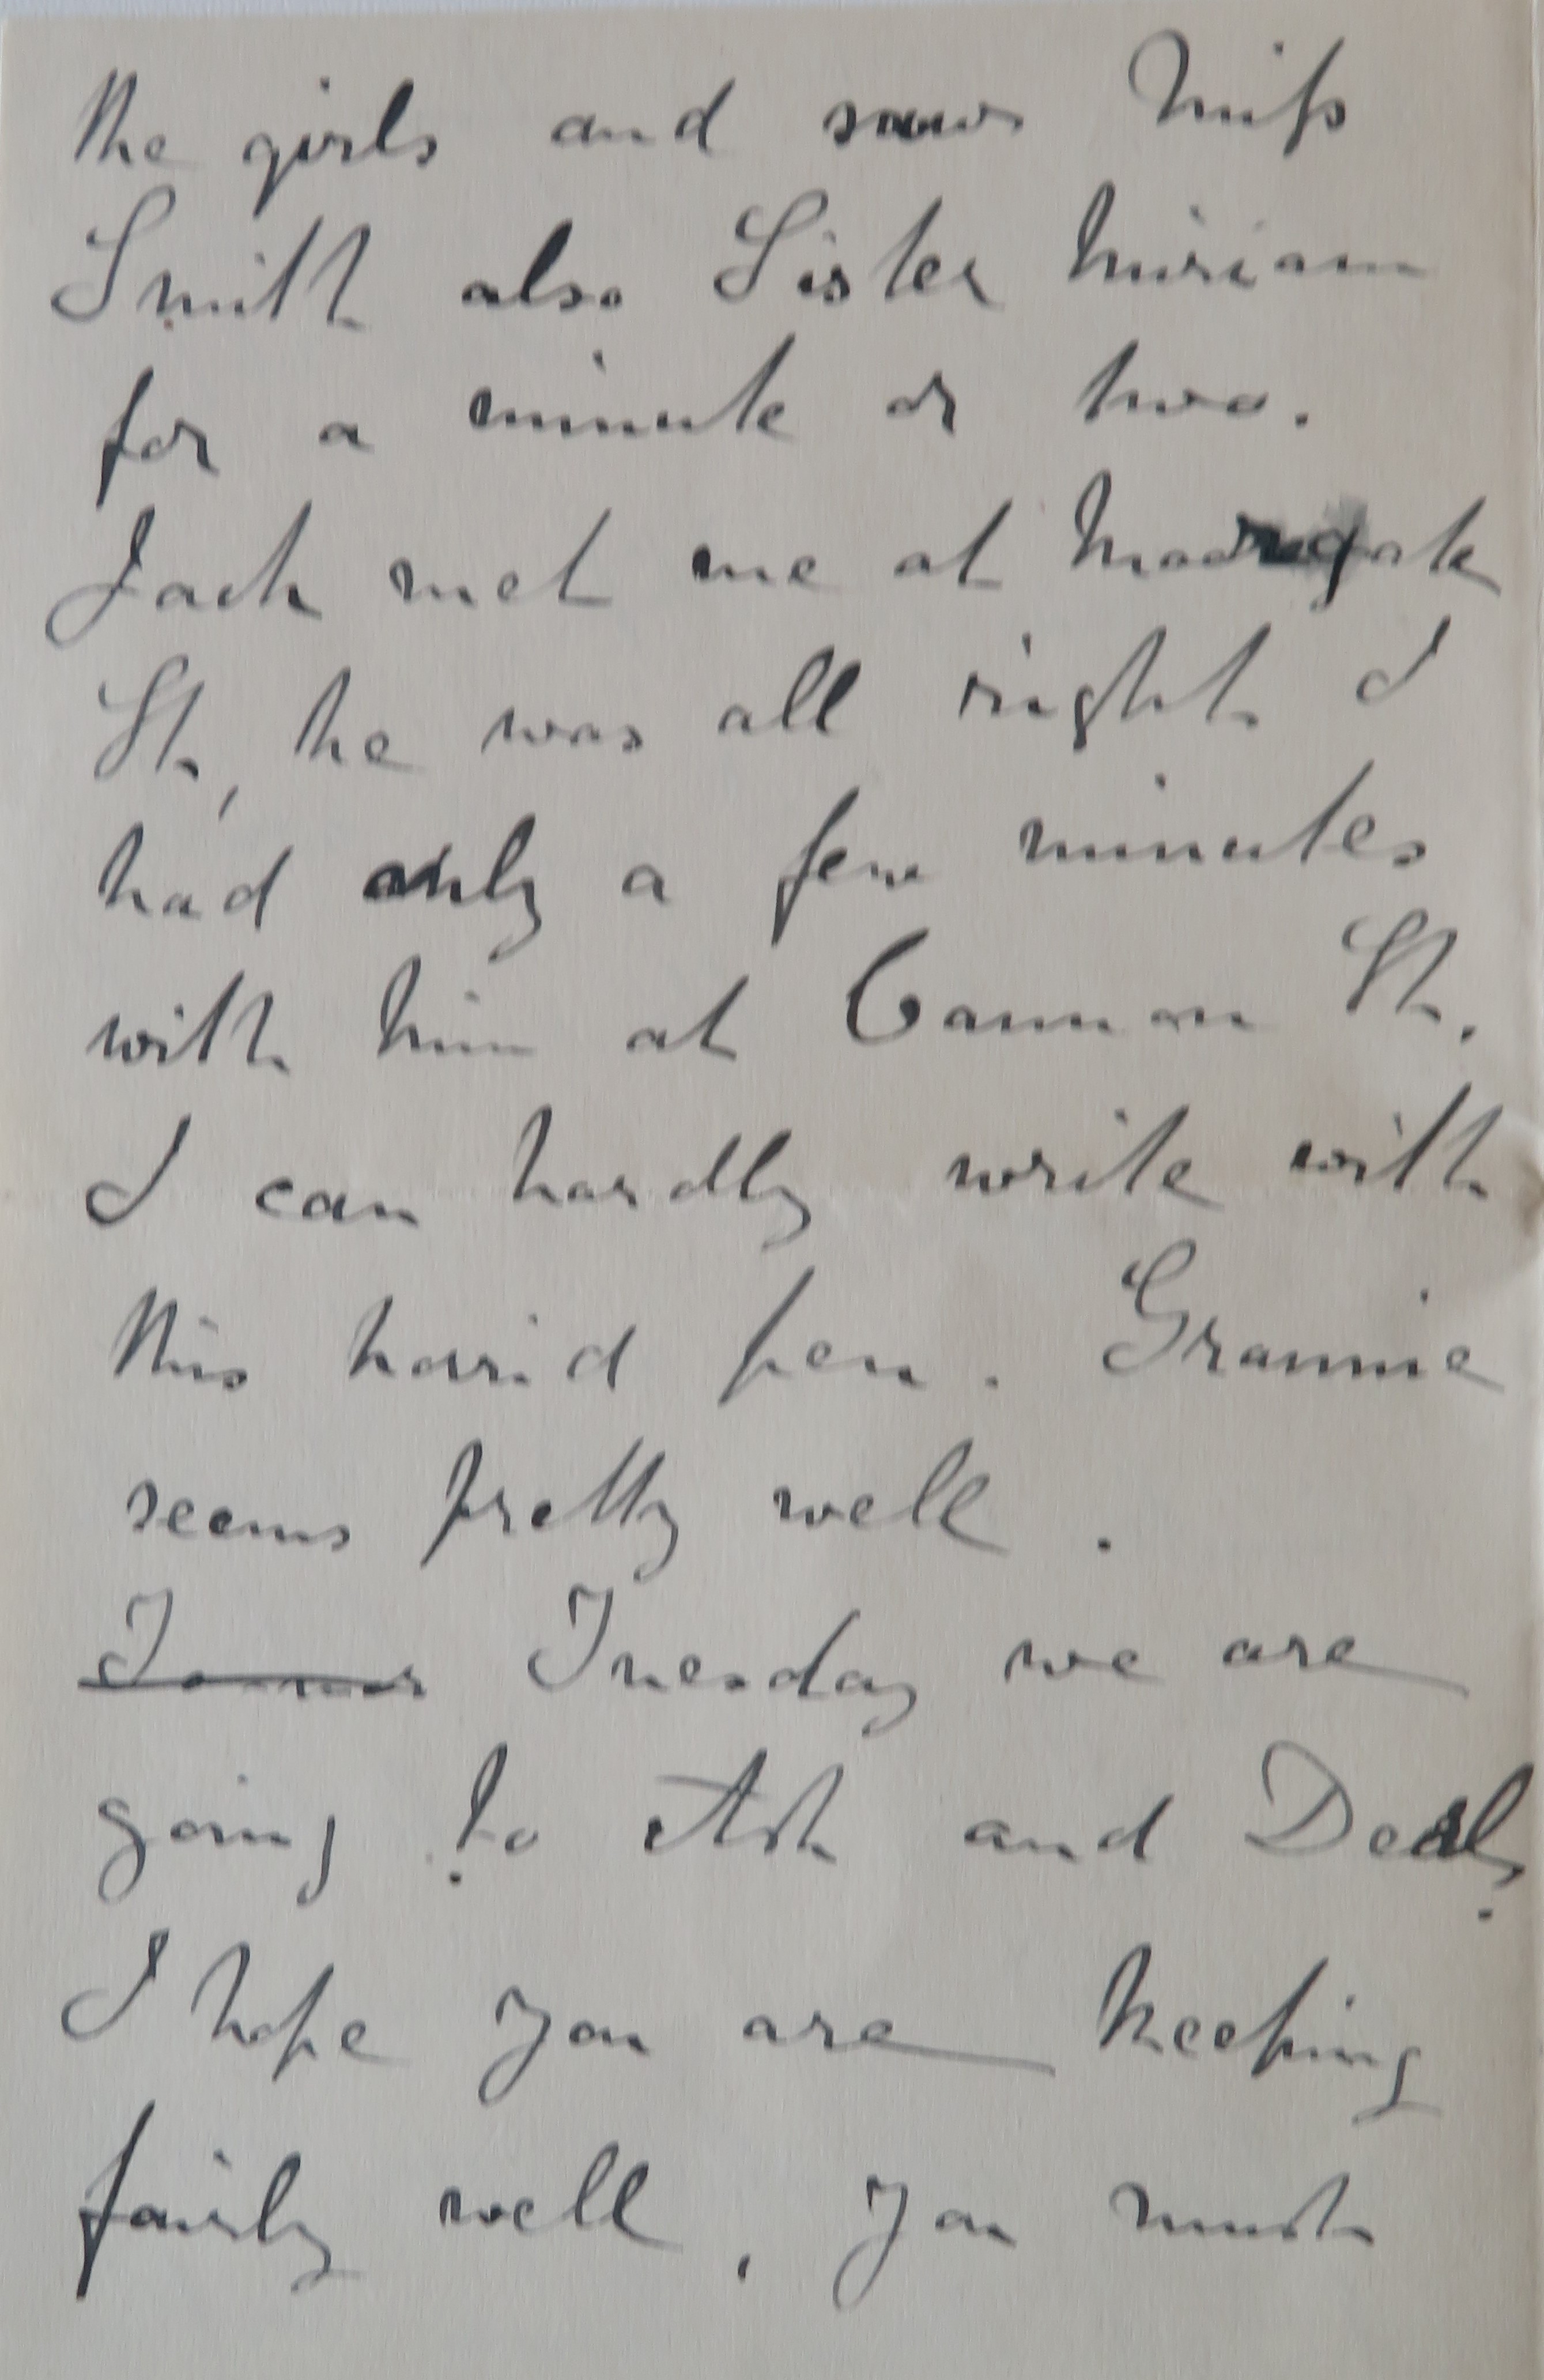 the girls and saw Miss
Smith also Sister Miriam
for a minute or two.
Jack met me at Moorgate
St, he was all right I
had only a few minutes
with him at Cannon St.
I can hardly write with
this horrid pen. Grannie
seems pretty well.
Tomor Tuesday we are
going to Ash and Deal.
I hope you are keeping
fairly well, you must